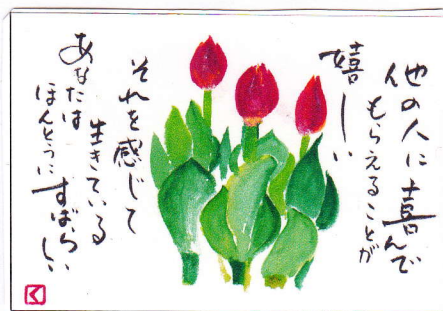 他の人に喜んで
もらえることが
嬉しい
それを感じて
生きている
あなたは
ほんとうに
すばらしい
く